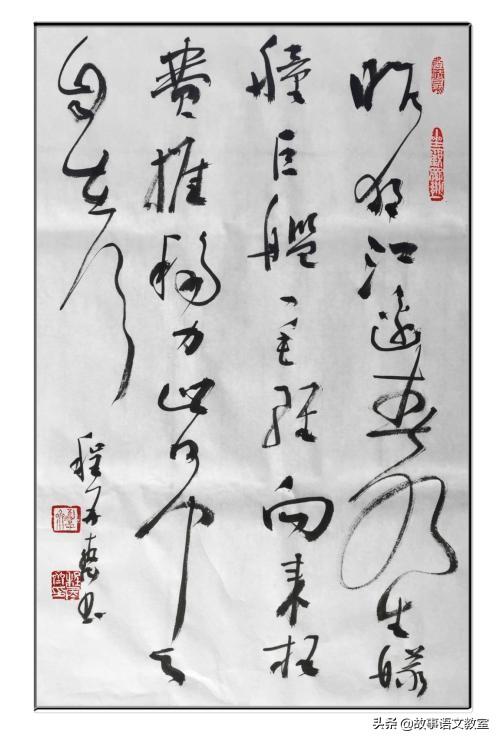 昨夜江邊春水生艨
艟巨艦一毛輕向来枉
費推移力此日中流
自在行
程 书
头条 @故事语文教室